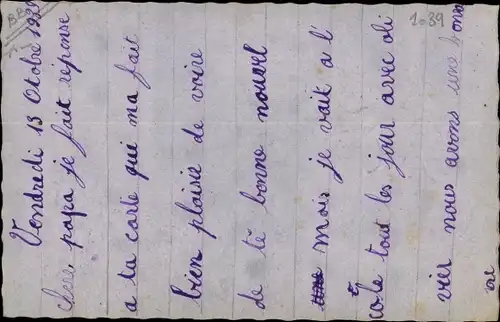 Vendredi 13 Otobre 1939
cher papa je fait réponse
a ta carte qui ma fait
bien plaisir de voire
de té bonne nouvel
mois je vait a l'
école tout les jour avec oli
vier nous avons une
1-39